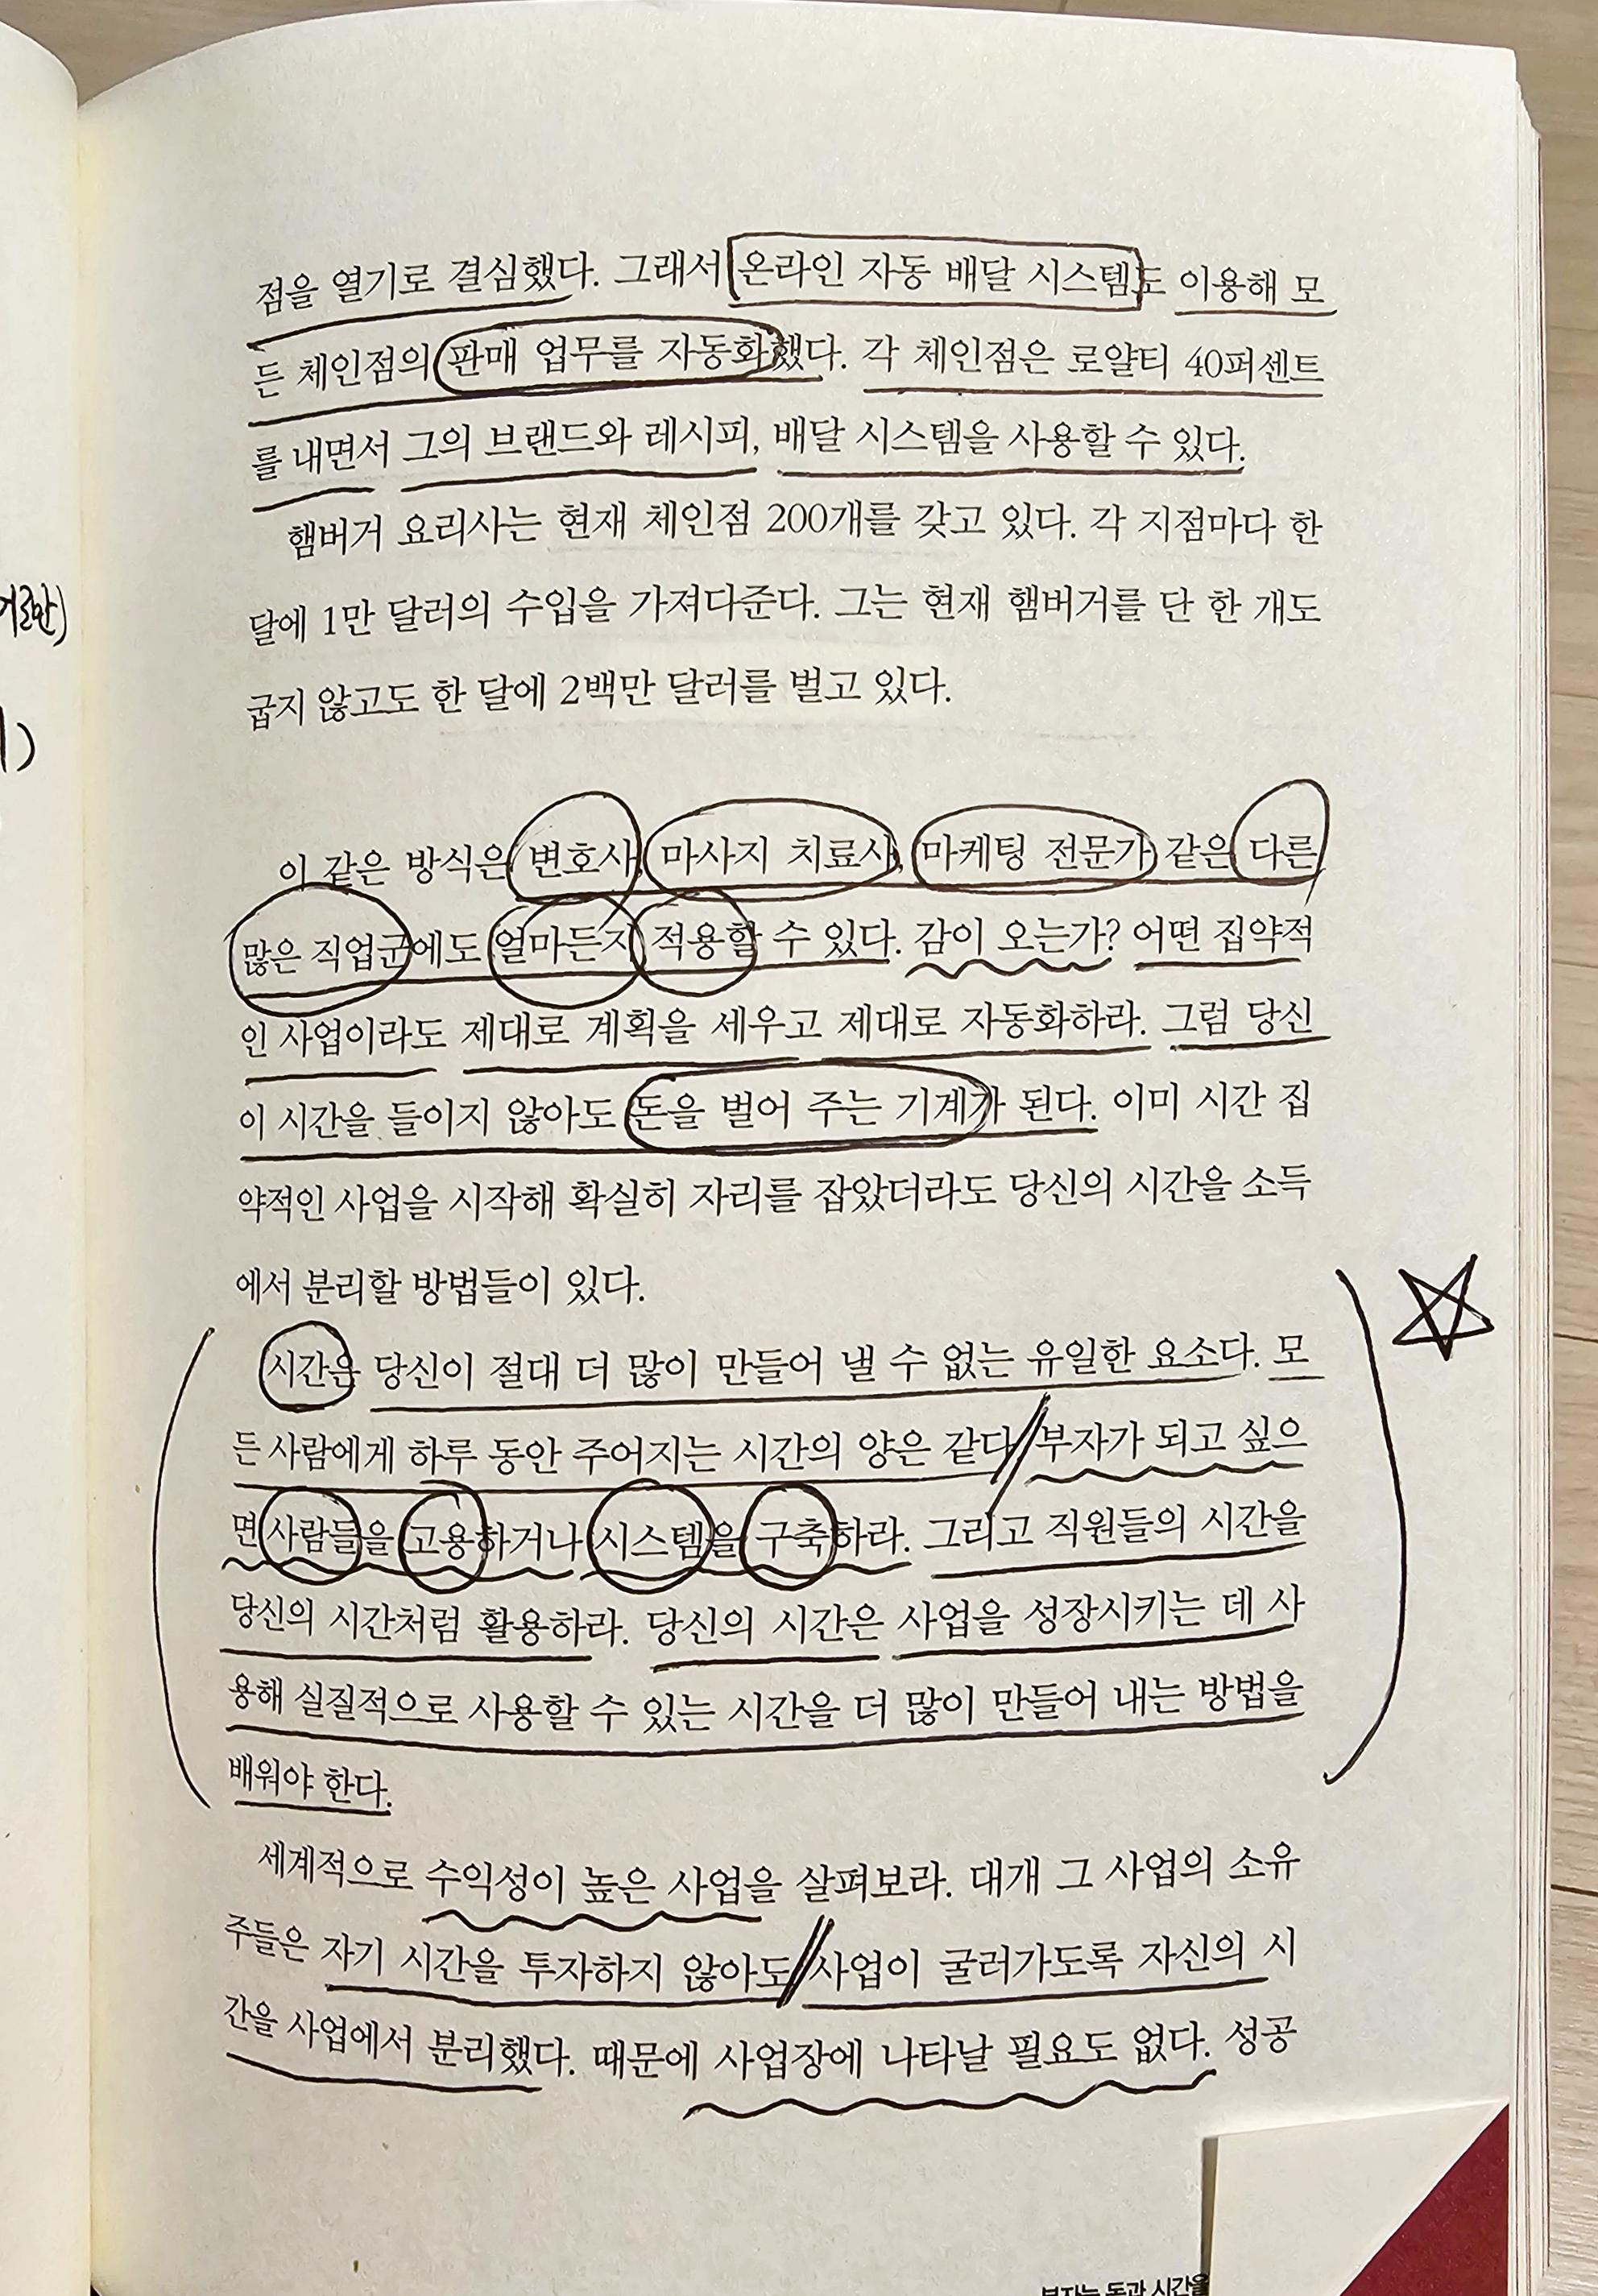 점을 열기로 결심했다. 그래서 온라인 자동 배달 시스템도 이용해 모
든 체인점의 판매 업무를 자동화했다. 각 체인점은 로얄티 40퍼센트
를 내면서 그의 브랜드와 레시피, 배달 시스템을 사용할 수 있다.
햄버거 요리사는 현재 체인점 200개를 갖고 있다. 각 지점마다 한
달에 1만 달러의 수입을 가져다준다. 그는 현재 햄버거를 단 한 개도
굽지 않고도 한 달에 2백만 달러를 벌고 있다.
이 같은 방식은 변호사, 마사지 치료사, 마케팅 전문가 같은 다른
많은 직업군에도 얼마든지 적용할 수 있다. 감이 오는가? 어떤 집약적
인 사업이라도 제대로 계획을 세우고 제대로 자동화하라. 그럼 당신
이 시간을 들이지 않아도 돈을 벌어 주는 기계가 된다. 이미 시간 집
약적인 사업을 시작해 확실히 자리를 잡았더라도 당신의 시간을 소득
에서 분리할 방법들이 있다.
시간은 당신이 절대 더 많이 만들어 낼 수 없는 유일한 요소다. 모
든 사람에게 하루 동안 주어지는 시간의 양은 같다. 부자가 되고 싶으
면 사람들을 고용하거나 시스템을 구축하라. 그리고 직원들의 시간을
당신의 시간처럼 활용하라. 당신의 시간은 사업을 성장시키는 데 사
용해 실질적으로 사용할 수 있는 시간을 더 많이 만들어 내는 방법을
배워야 한다.
세계적으로 수익성이 높은 사업을 살펴보라. 대개 그 사업의 소유
주들은 자기 시간을 투자하지 않아도 사업이 굴러가도록 자신의 시
간을 사업에서 분리했다. 때문에 사업장에 나타날 필요도 없다. 성공
부자는 돈과 시간을